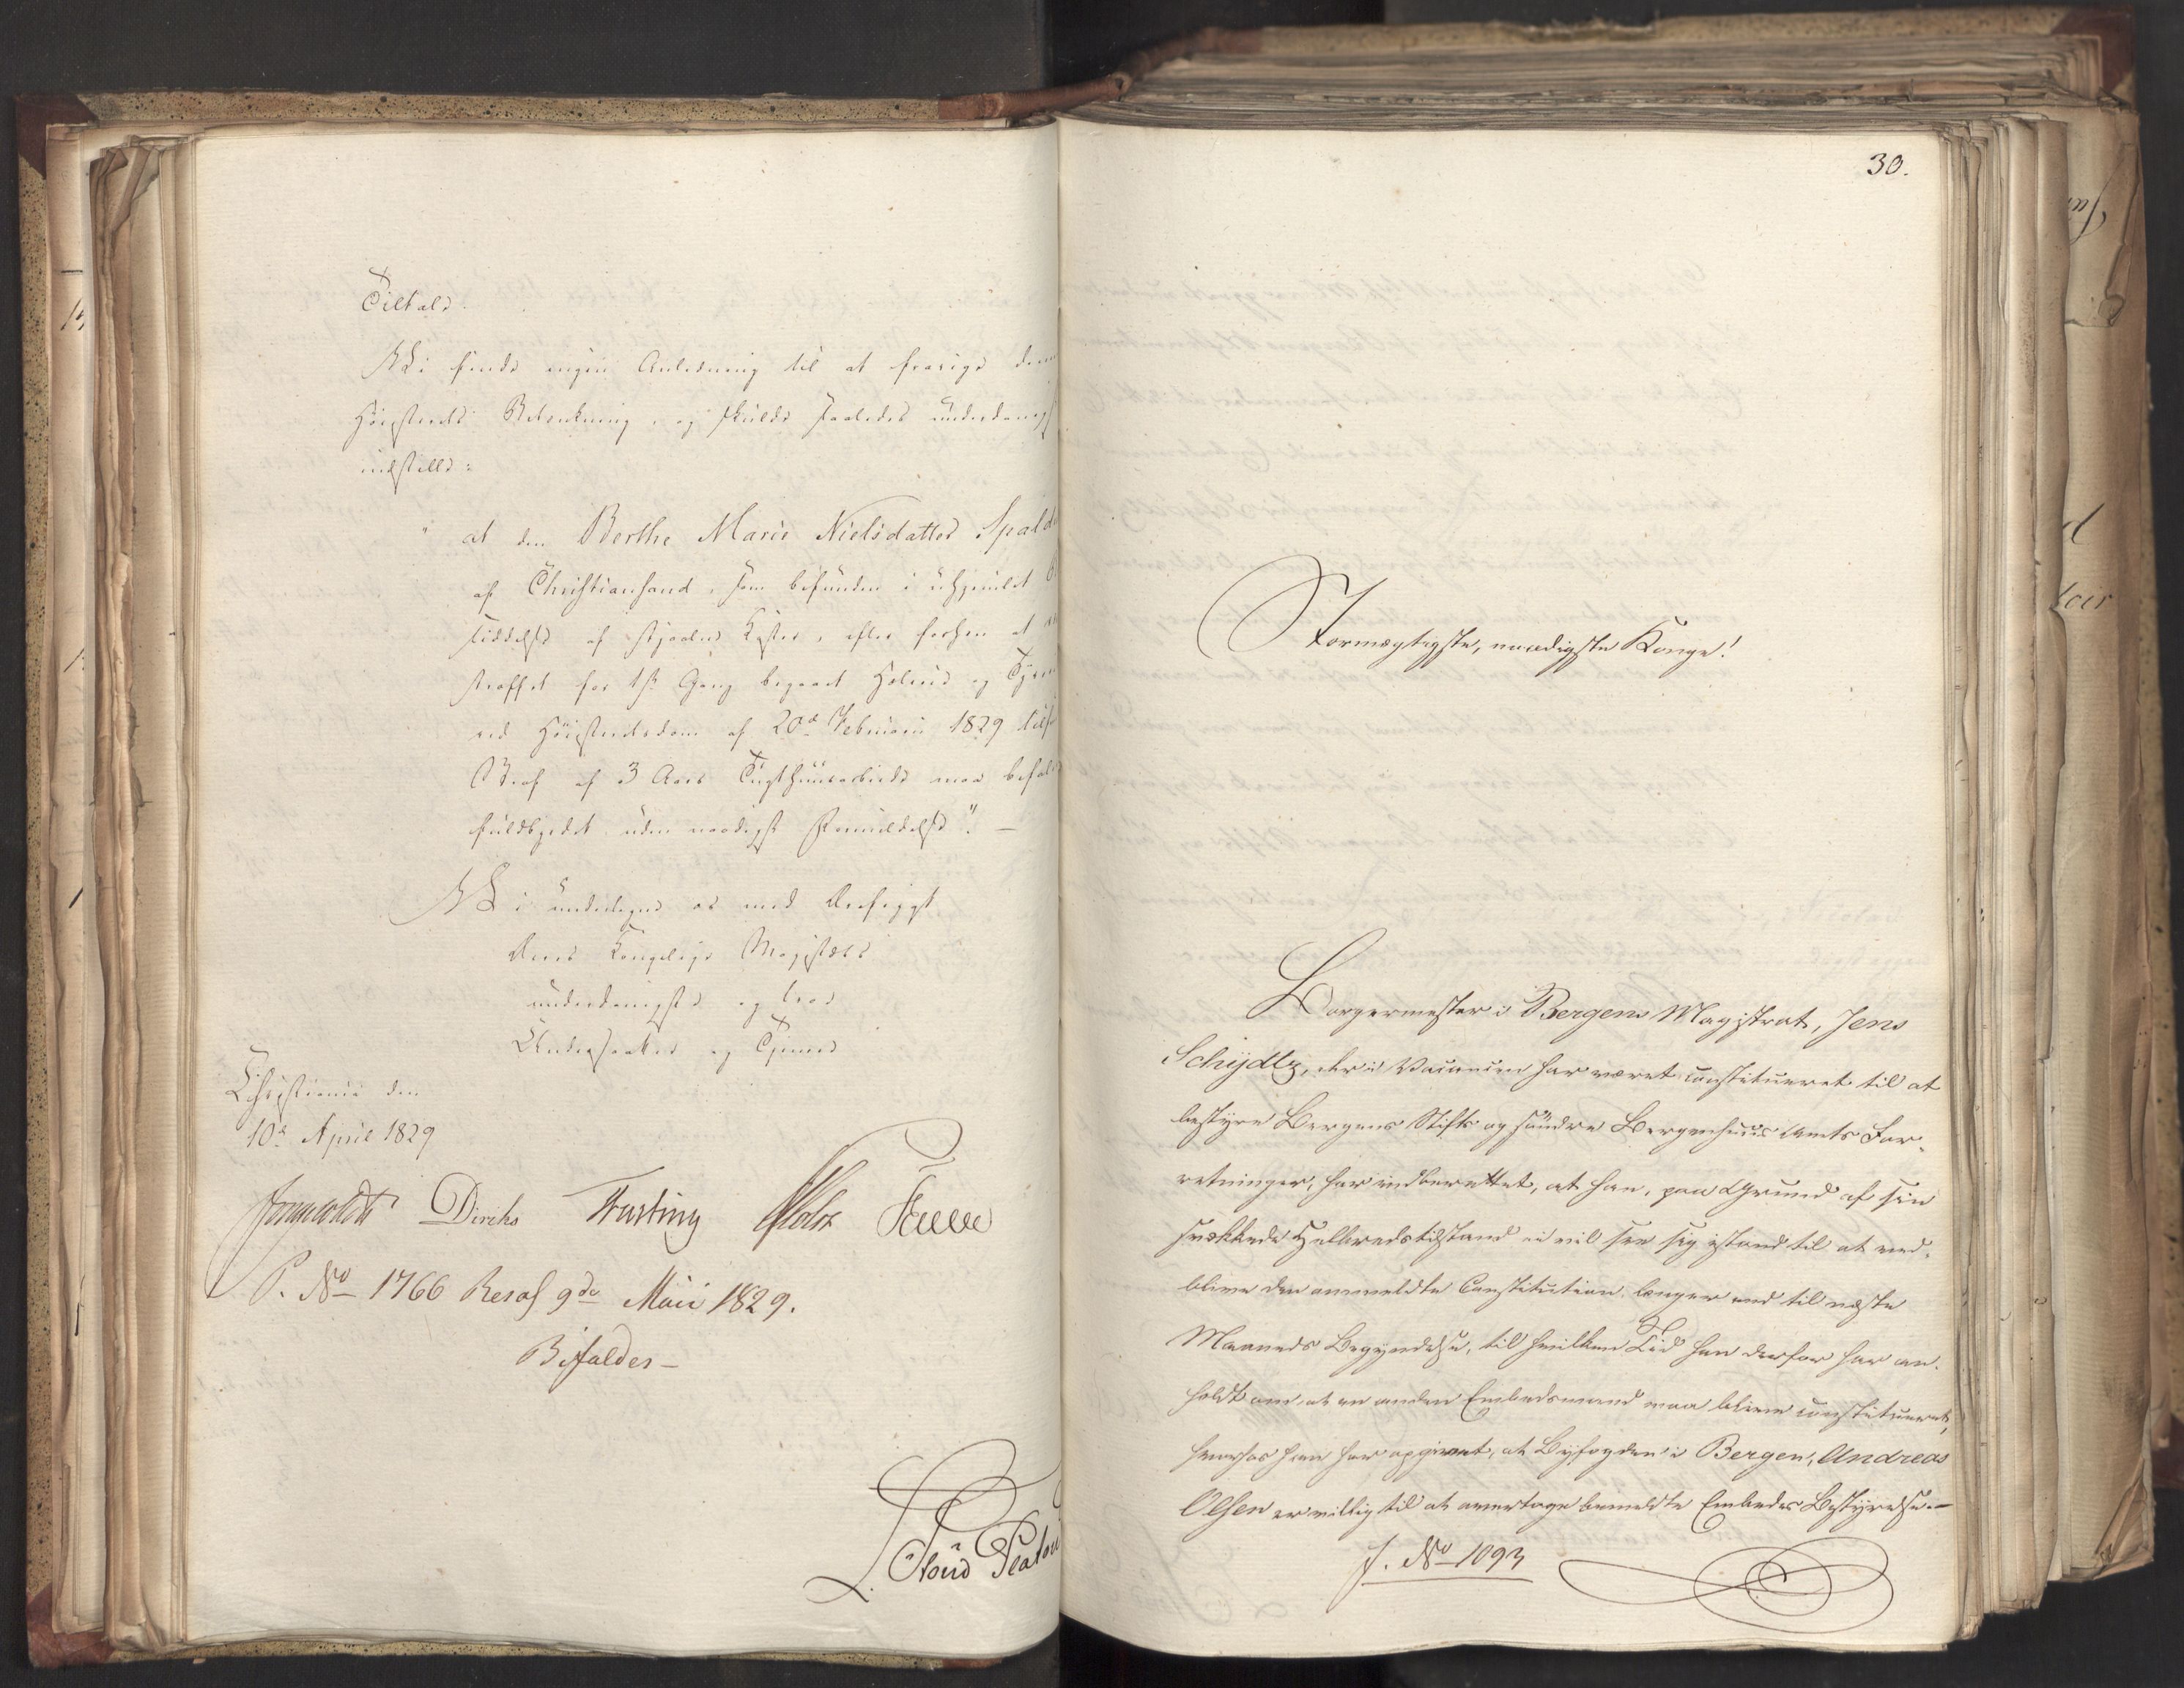 Tiltald.
Vi finde ingen Anledning til at fravige denne
Høiesterets Betænkning, og skulde saaledes underdanigst
indstille:
"at den Berthe Marie Nielsdatter
af Christiansand, som befunden i
af stjaalne Koster, efter forhen at
straffet for 1ste Gang begaaet Hæleri og
ved Høiesteretsdom af 20de Februarii 1829
Straf af 3 Aars Tugthuusarbeide maa
fuldbyrdet uden naadigst Formildelse". —
Vi undertegne os med Ærefrygt
Deres Kongelige Majestæts
underdanigste og troe
Undersaatter og Tjenere
Christiania den
10de April 1829
Diriks Fasting Holst
P. No 1766 Resol 9de Maii 1829.
Bifaldes —
30.
Stormægtigste, naadigste Konge!
Borgermester i Bergens Magistrat, Jens
Schydtz, der i Vacancen har været constitueret til at
bestyre Bergens Stifts og søndre Bergenhuus Amts For-
retninger, har indberettet, at han, paa Grund af sin
svækkede Helbredstilstand ei vil see sig istand til at ved-
blive den anmeldte Constitution længer end til næste
Maaneds Begyndelse, til hvilken Tid han derfor har an-
holdt om, at en anden Embedsmand maa blive constitueret,
hvorhos han har opgivet, at Byfogden i Bergen, Andreas
Olsen er villig til at overtage bemeldte Embedes Bestyrelse. —
J. No 1093